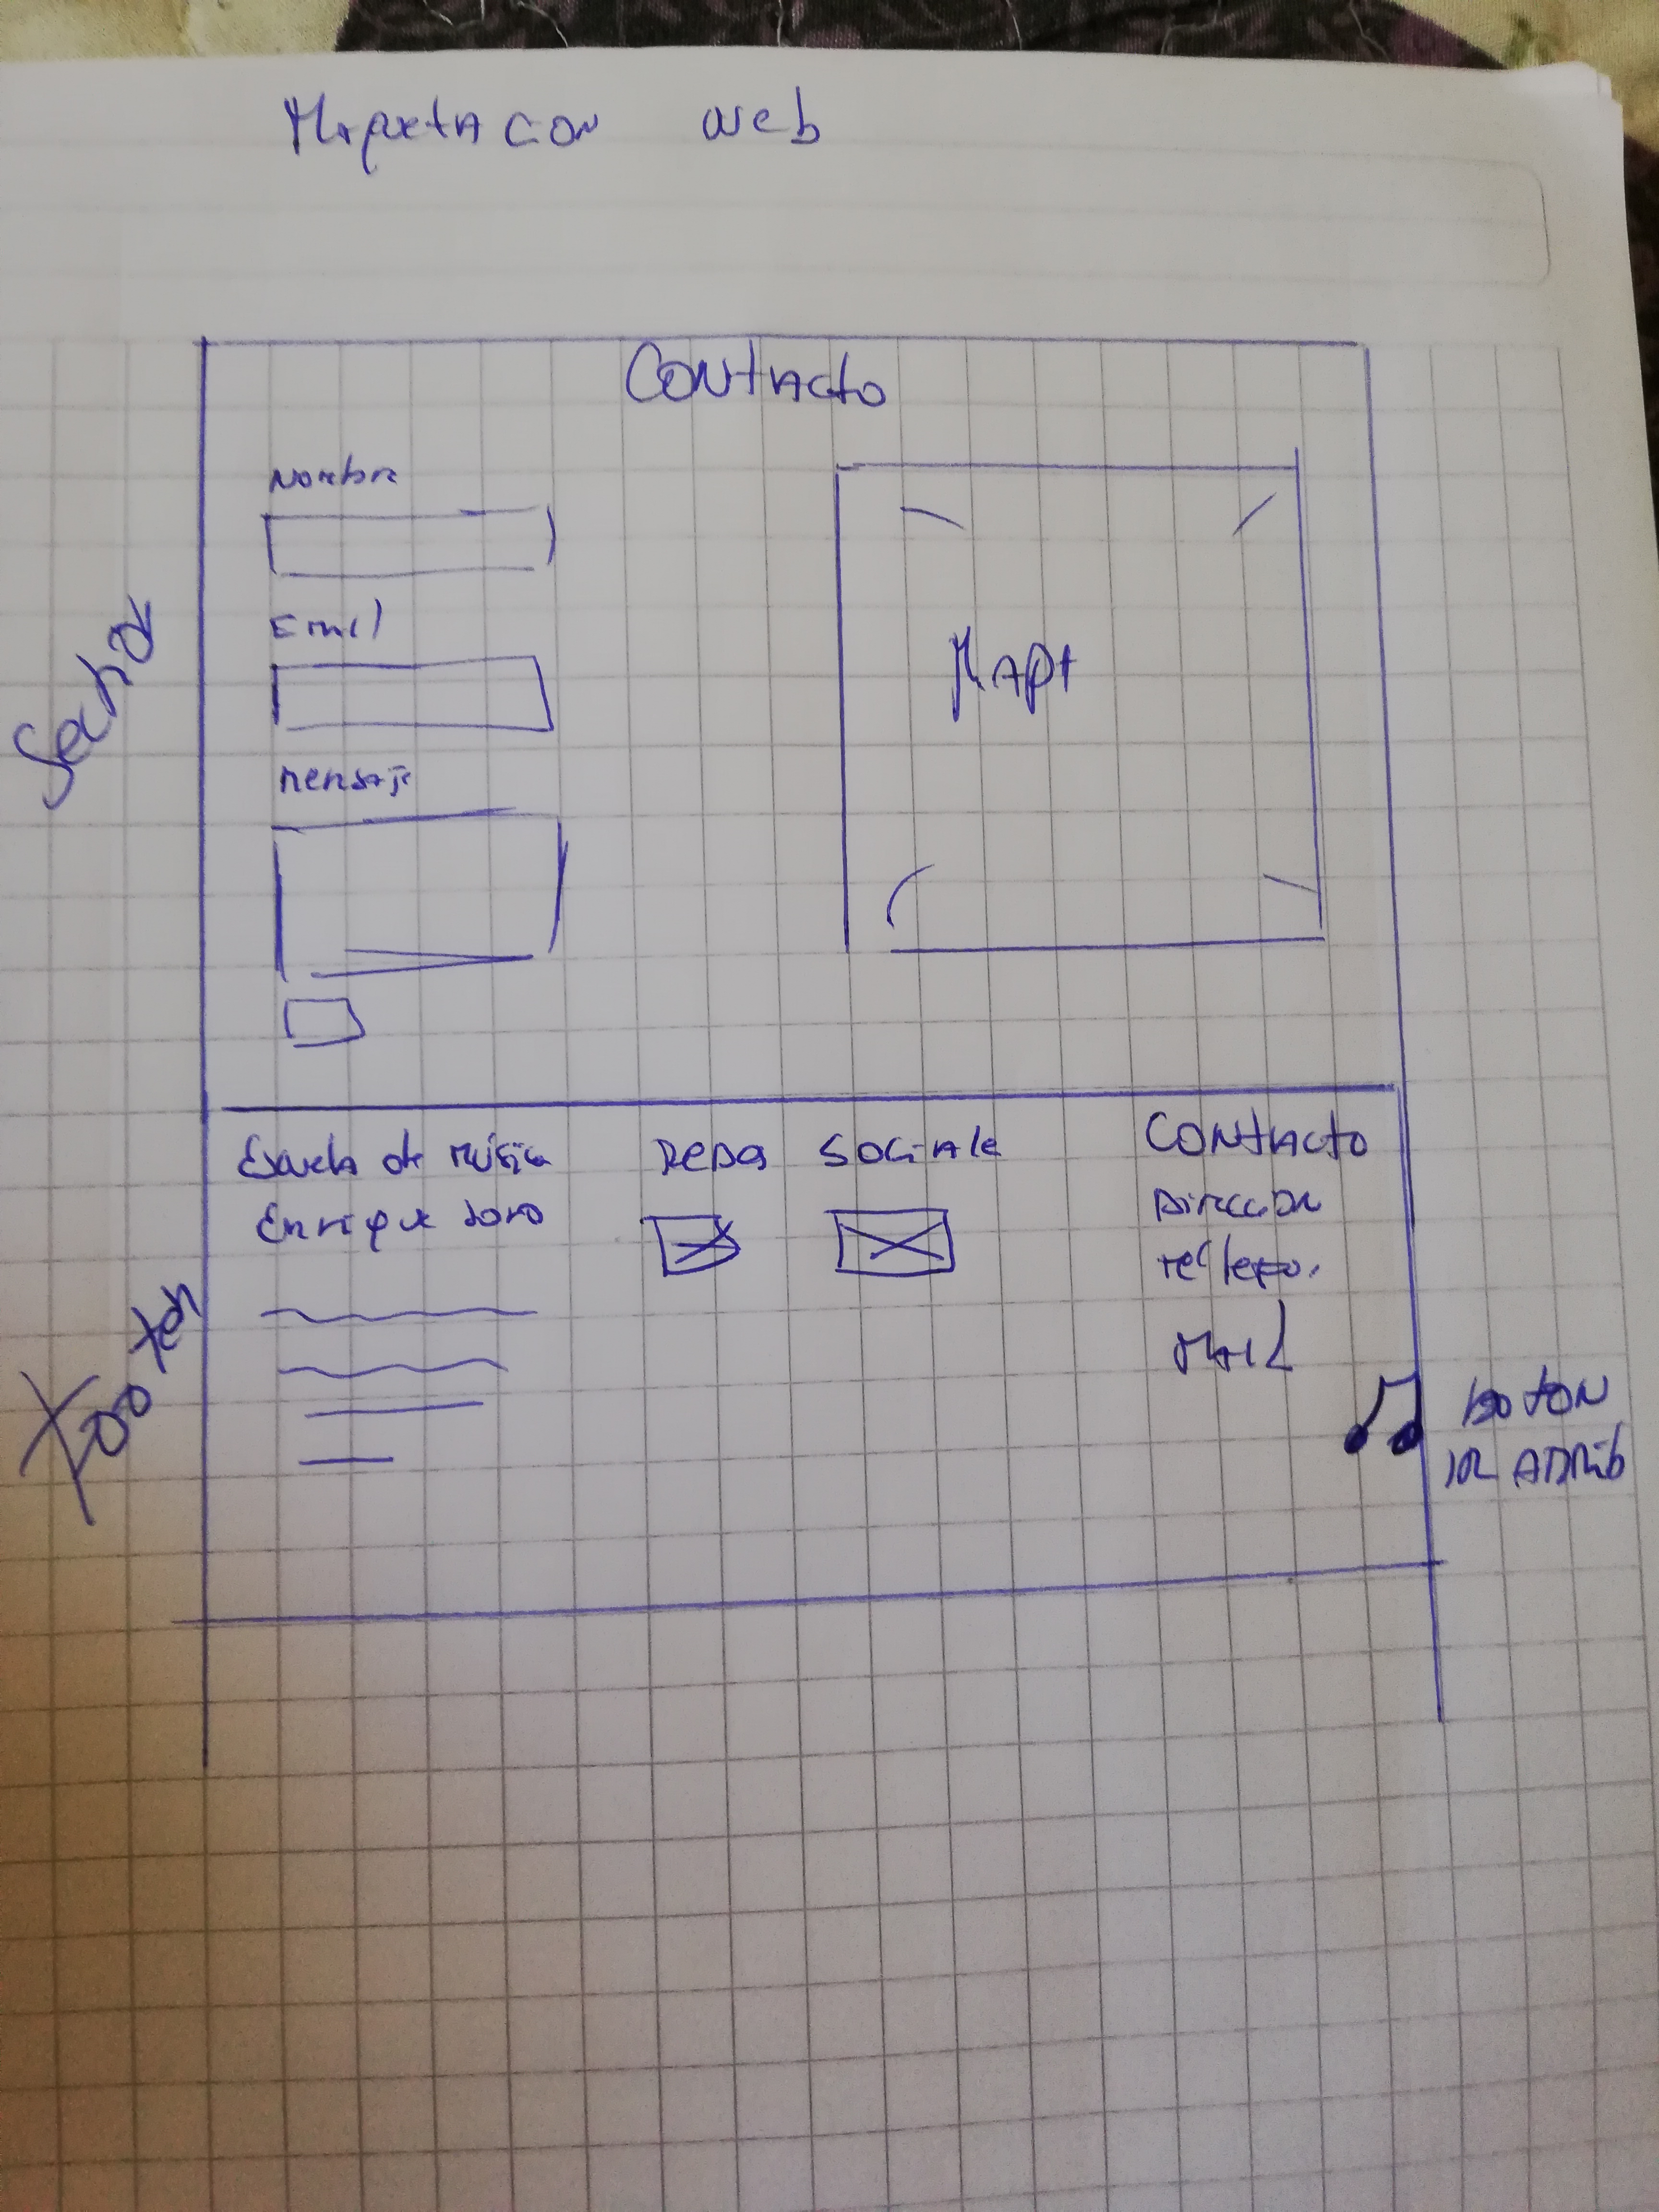 Maquetacon web
Contacto
Nombre
Email
Mensaje
Mapa
Section
Escuela de Música
Enrique Soro
Redes Sociale
Contacto
Direccion
Mail
Footer
Boton